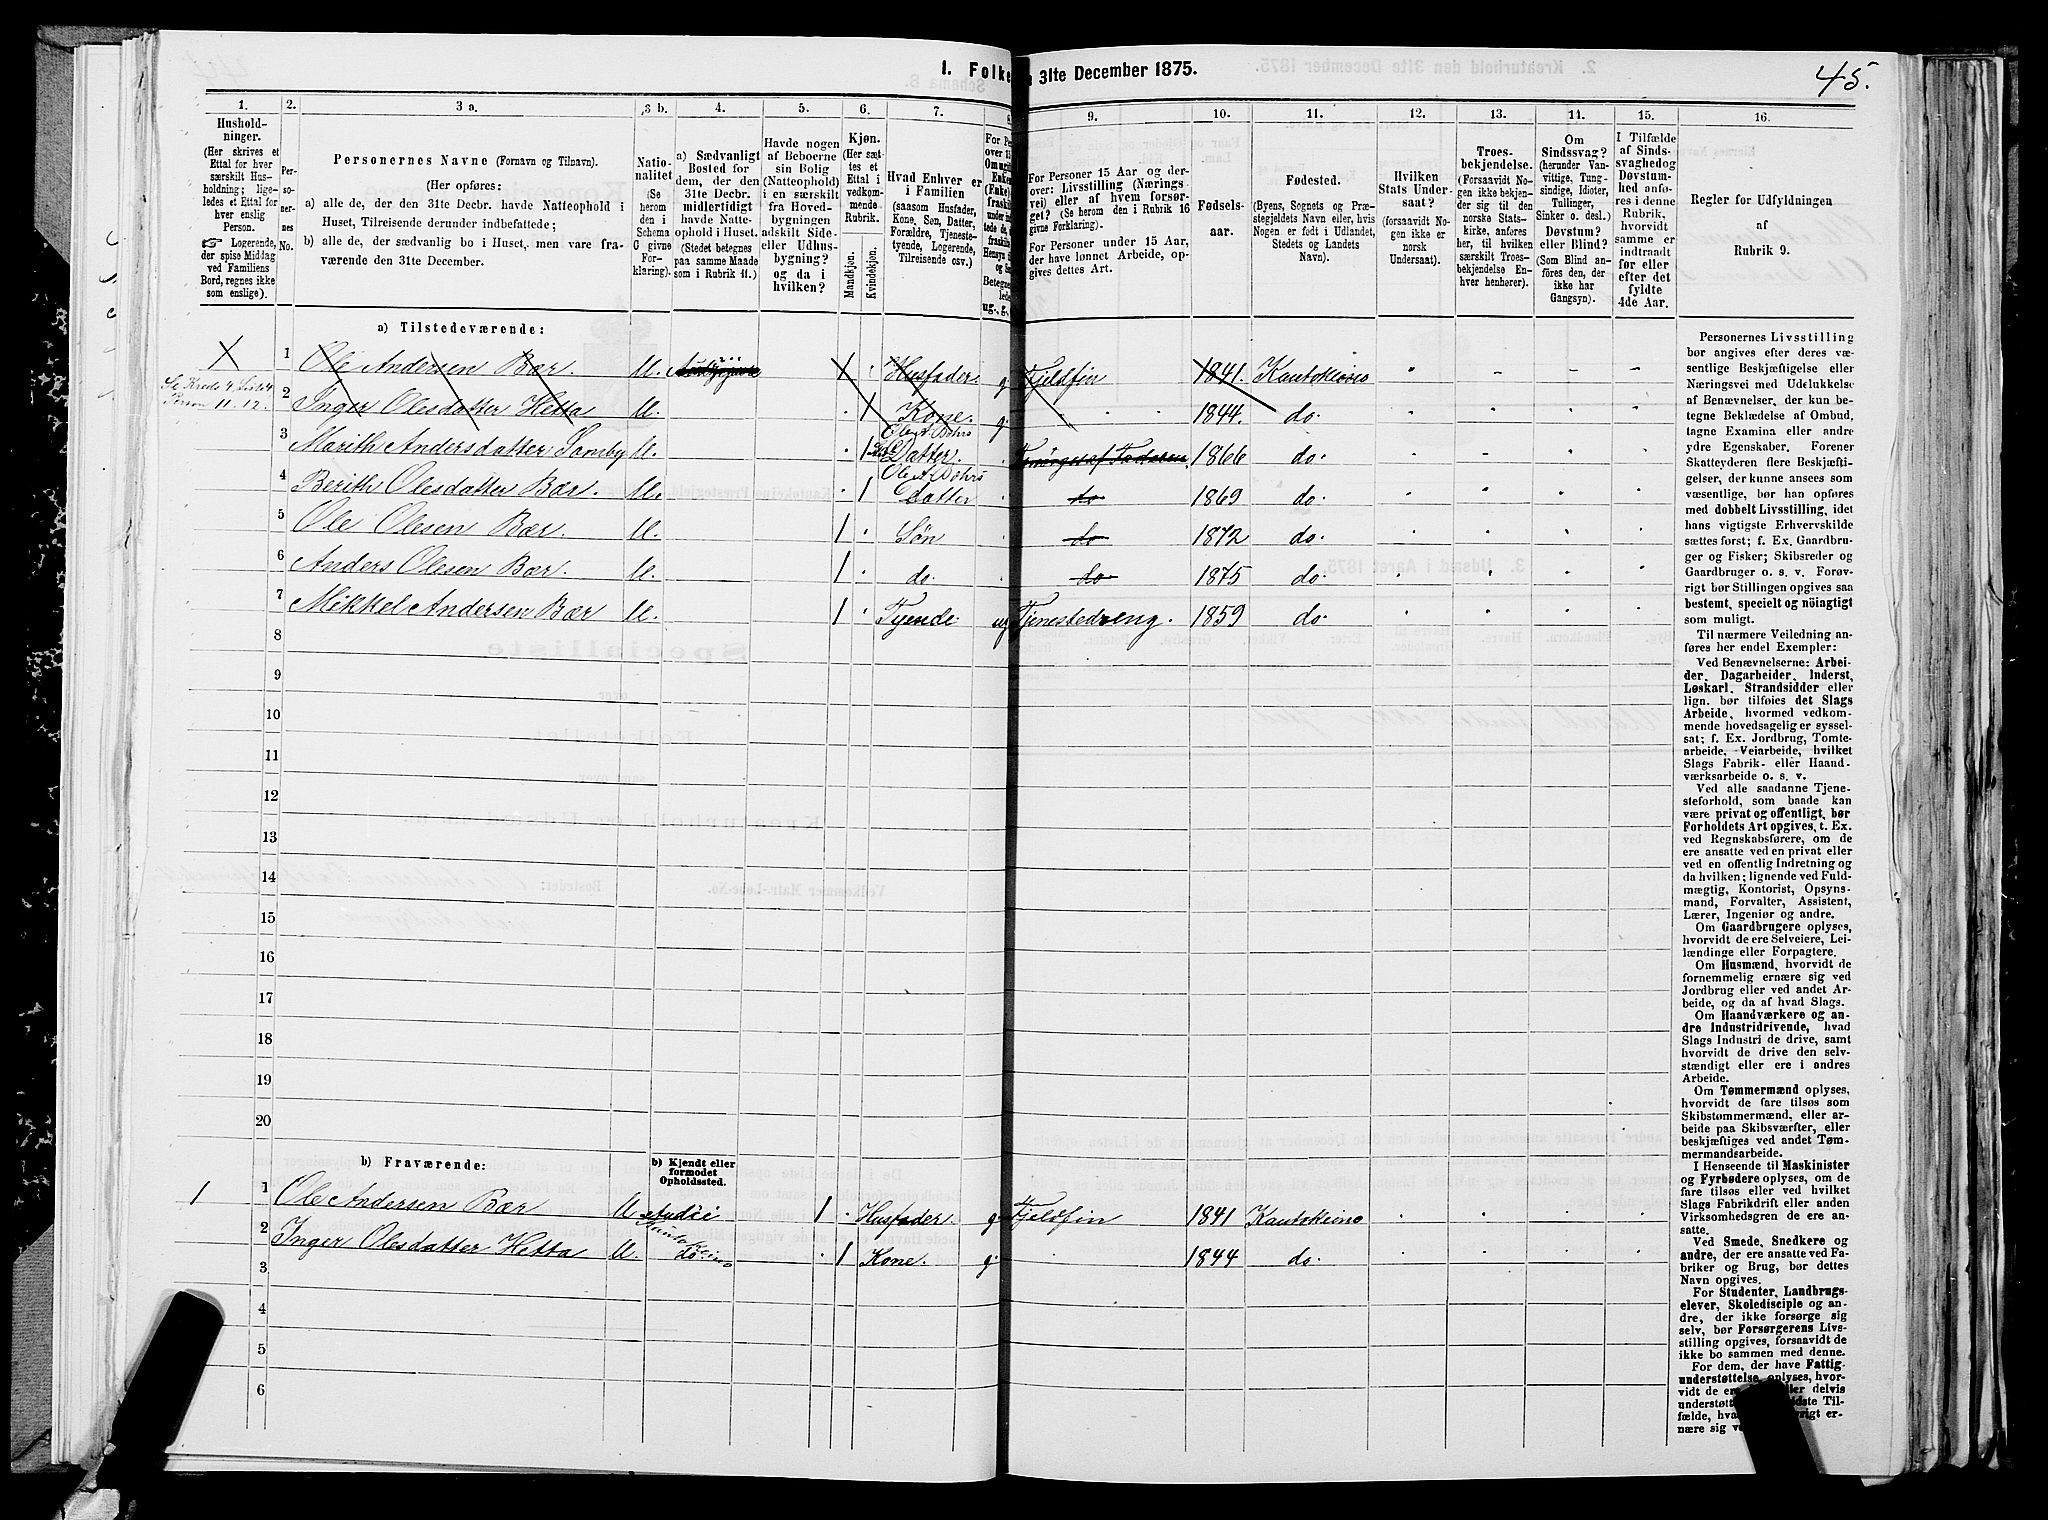 1. Folke
31te December 1875.
45.
1. 2. 3 a. 3 b. 4. 5. 6. 7. 8. 9. 10. 11. 12. 13. 14. 15. 16.
Hushold-
ninger.
(Her skrives et
Ettal for hver
særskilt Hus-
holdning; lige-
ledes et Ettal for
hver enslig
Person.
☞ Logerende,
der spise Middag
ved Familiens
Bord, regnes ikke
som enslige).
Per-
so-
ner-
nes
No.
Personernes Navne (Fornavn og Tilnavn).
(Her opføres:
a) alle de, der den 31te Decbr. havde Natteophold i
Huset, Tilreisende derunder indbefattede;
b) alle de, der sædvanlig bo i Huset, men vare fra-
værende den 31te December.
Natio-
nalitet
(Se
herom
den i
Schema
G givne
For-
klaring).
a) Sædvanligt
Bosted for
dem, der den
31te Decbr.
midlertidigt
havde Natte-
ophold i Huset.
(Stedet betegnes
paa samme Maade
som i Rubrik 11.)
Havde nogen
af Beboerne
sin Bolig
(Natteophold)
i en særskilt
fra Hoved-
bygningen
adskilt Side-
eller Udhus-
bygning?
og da i
hvilken?
Kjøn.
(Her sæt-
tes et
Ettal i
vedkom-
mende
Rubrik.
Mandkjøn.
Kvindekjøn.
Hvad Enhver er
i Familien
(saasom Husfader,
Kone, Søn, Datter,
Forældre, Tjeneste-
tyende, Logerende,
Tilreisende osv.)
For Personer 15 Aar og der-
over: Livsstilling (Nærings-
vei) eller af hvem forsør-
get? (Se herom den i Rubrik 16
givne Forklaring).
For Personer under 15 Aar,
der have lønnet Arbeide, op-
gives dettes Art.
Fødsels-
aar.
Fødested.
(Byens, Sognets og Præ-
stegjeldets Navn eller, hvis
Nogen er født i Udlandet,
Stedets og Landets
Navn).
Hvilken
Stats Under-
saat?
(forsaavidt No-
gen ikke er
norsk
Undersaat).
Troes-
bekjendelse.
(Forsaavidt No-
gen ikke bekjen-
der sig til den
norske Stats-
kirke, anføres
her, til hvilken
særskilt Troes-
bekjendelse En-
hver henhører).
Om
Sindssvag?
(herunder Van-
vittige, Tung-
sindige, Idioter,
Tullinger,
Sinker o. desl.)
Døvstum?
eller Blind?
(Som Blind an-
føres den, der
ikke har
Gangsyn).
I Tilfælde
af Sinds-
svaghedog
Døvstum-
hed anfø-
res i denne
Rubrik,
hvorvidt
samme er
indtraadt
før eller
efter det
fyldte
4de Aar.
Regler for Udfyldningen
af
Rubrik 9.
a) Tilstedeværende:
1 Ole Andersen Bær M. Husfader g Fjeldfin 1841. Kautokeino
Person 11. 12.
2 Inger Olesdatter Hetta M. 1 Kone. g. 1844. do.
3 Marith Andersdatter Somby M. 1 Datter. Forsørges af Faderen 1866 do.
4 Berith Olesdatter Bær. M. 1 Datter do 1869 do.
5 Ole Olesen Bær. M. 1 Søn do 1872 do.
6 Anders Olesen Bær. M. 1 do. do 1875 do.
7 Mikkel Andersen Bær M. 1 Tyende ug Tjenestedreng. 1859 do.
8
9
10
11
12
13
14
15
16
17
18
19
20
b) Fraværende:
b) Kjendt eller
formodet
Opholdssted.
1 1 Ole Andersen Bær M. 1 Husfader. g. Fjeldfin 1841 Kautokeino
2 Inger Olesdatter Hetta M. do 1 Kone. g. 1844 do.
3
4
5
6
Personernes Livsstilling
bør angives efter deres væ-
sentlige Beskjæftigelse eller
Næringsvei med Udelukkelse
af Benævnelser, der kun be-
tegne Beklædelse af Ombud,
tagne Examina eller andre
ydre Egenskaber. Forener
Skatteyderen flere Beskjæfti-
gelser, der kunne ansees som
væsentlige, bør han opføres
med dobbelt Livsstilling, idet
hans vigtigste Erhvervskilde
sættes først; f. Ex. Gaardbru-
ger og Fisker; Skibsreder og
Gaardbruger o. s. v. Forøv-
rigt bør Stillingen opgives saa
bestemt, specielt og nöiagtigt
som muligt.
Til nærmere Veiledning an-
føres her endel Exempler:
Ved Benævnelserne: Arbei-
der, Dagarbeider, Inderst,
Løskarl, Strandsidder eller
lign. bør tilføies det Slags
Arbeide, hvormed vedkom-
mende hovedsagelig er syssel-
sat; f. Ex. Jordbrug, Tomte-
arbeide, Veiarbeide, hvilket
Slags Fabrik- eller Haand-
værksarbeide o. s. v.
Ved alle saadanne Tjene-
steforhold, som baade kan
være privat og offentligt, bør
Forholdets Art opgives, t. Ex.
ved Regnskabsførere, om de
ere ansatte ved en privat eller
ved en offentlig Indretning og
da hvilken; lignende ved Fuld-
mægtig, Kontorist, Opsyns-
mand, Forvalter, Assistent,
Lærer, Ingeniør og andre.
Om Gaardbrugere oplyses,
hvorvidt de ere Selveiere, Lei-
lændinge eller Forpagtere.
Om Husmænd, hvorvidt de
fornemmelig ernære sig ved
Jordbrug eller ved andet Ar-
beide, og da af hvad Slags.
Om Haandværkere og an-
dre Industridrivende, hvad
Slags Industri de drive, samt
hvorvidt de drive den selv-
stændigt eller ere i andres
Arbeide.
Om Tømmermænd oplyses,
hvorvidt de fare tilsøs som
Skibstømmermænd, eller ar-
beide paa Skibsværfter, eller
beskjæftiges ved andet Tøm-
mermandsarbeide.
I Henseende til Maskinister
og Fyrbødere oplyses, om de
fare tilsøs eller ved hvilket
Slags Fabrikdrift eller anden
Virksomhedsgren de ere an-
satte.
Ved Smede, Snedkere og
andre, der ere ansatte ved Fa-
briker og Brug, bør dettes
Navn opgives.
For Studenter, Landbrugs-
elever, Skoledisciple og an-
dre, der ikke forsørge sig
selv, bør Forsørgerens Livs-
stilling opgives, forsaavidt de
ikke bo sammen med denne.
For dem, der have Fattig-
understøttelse, oplyses, hvor-